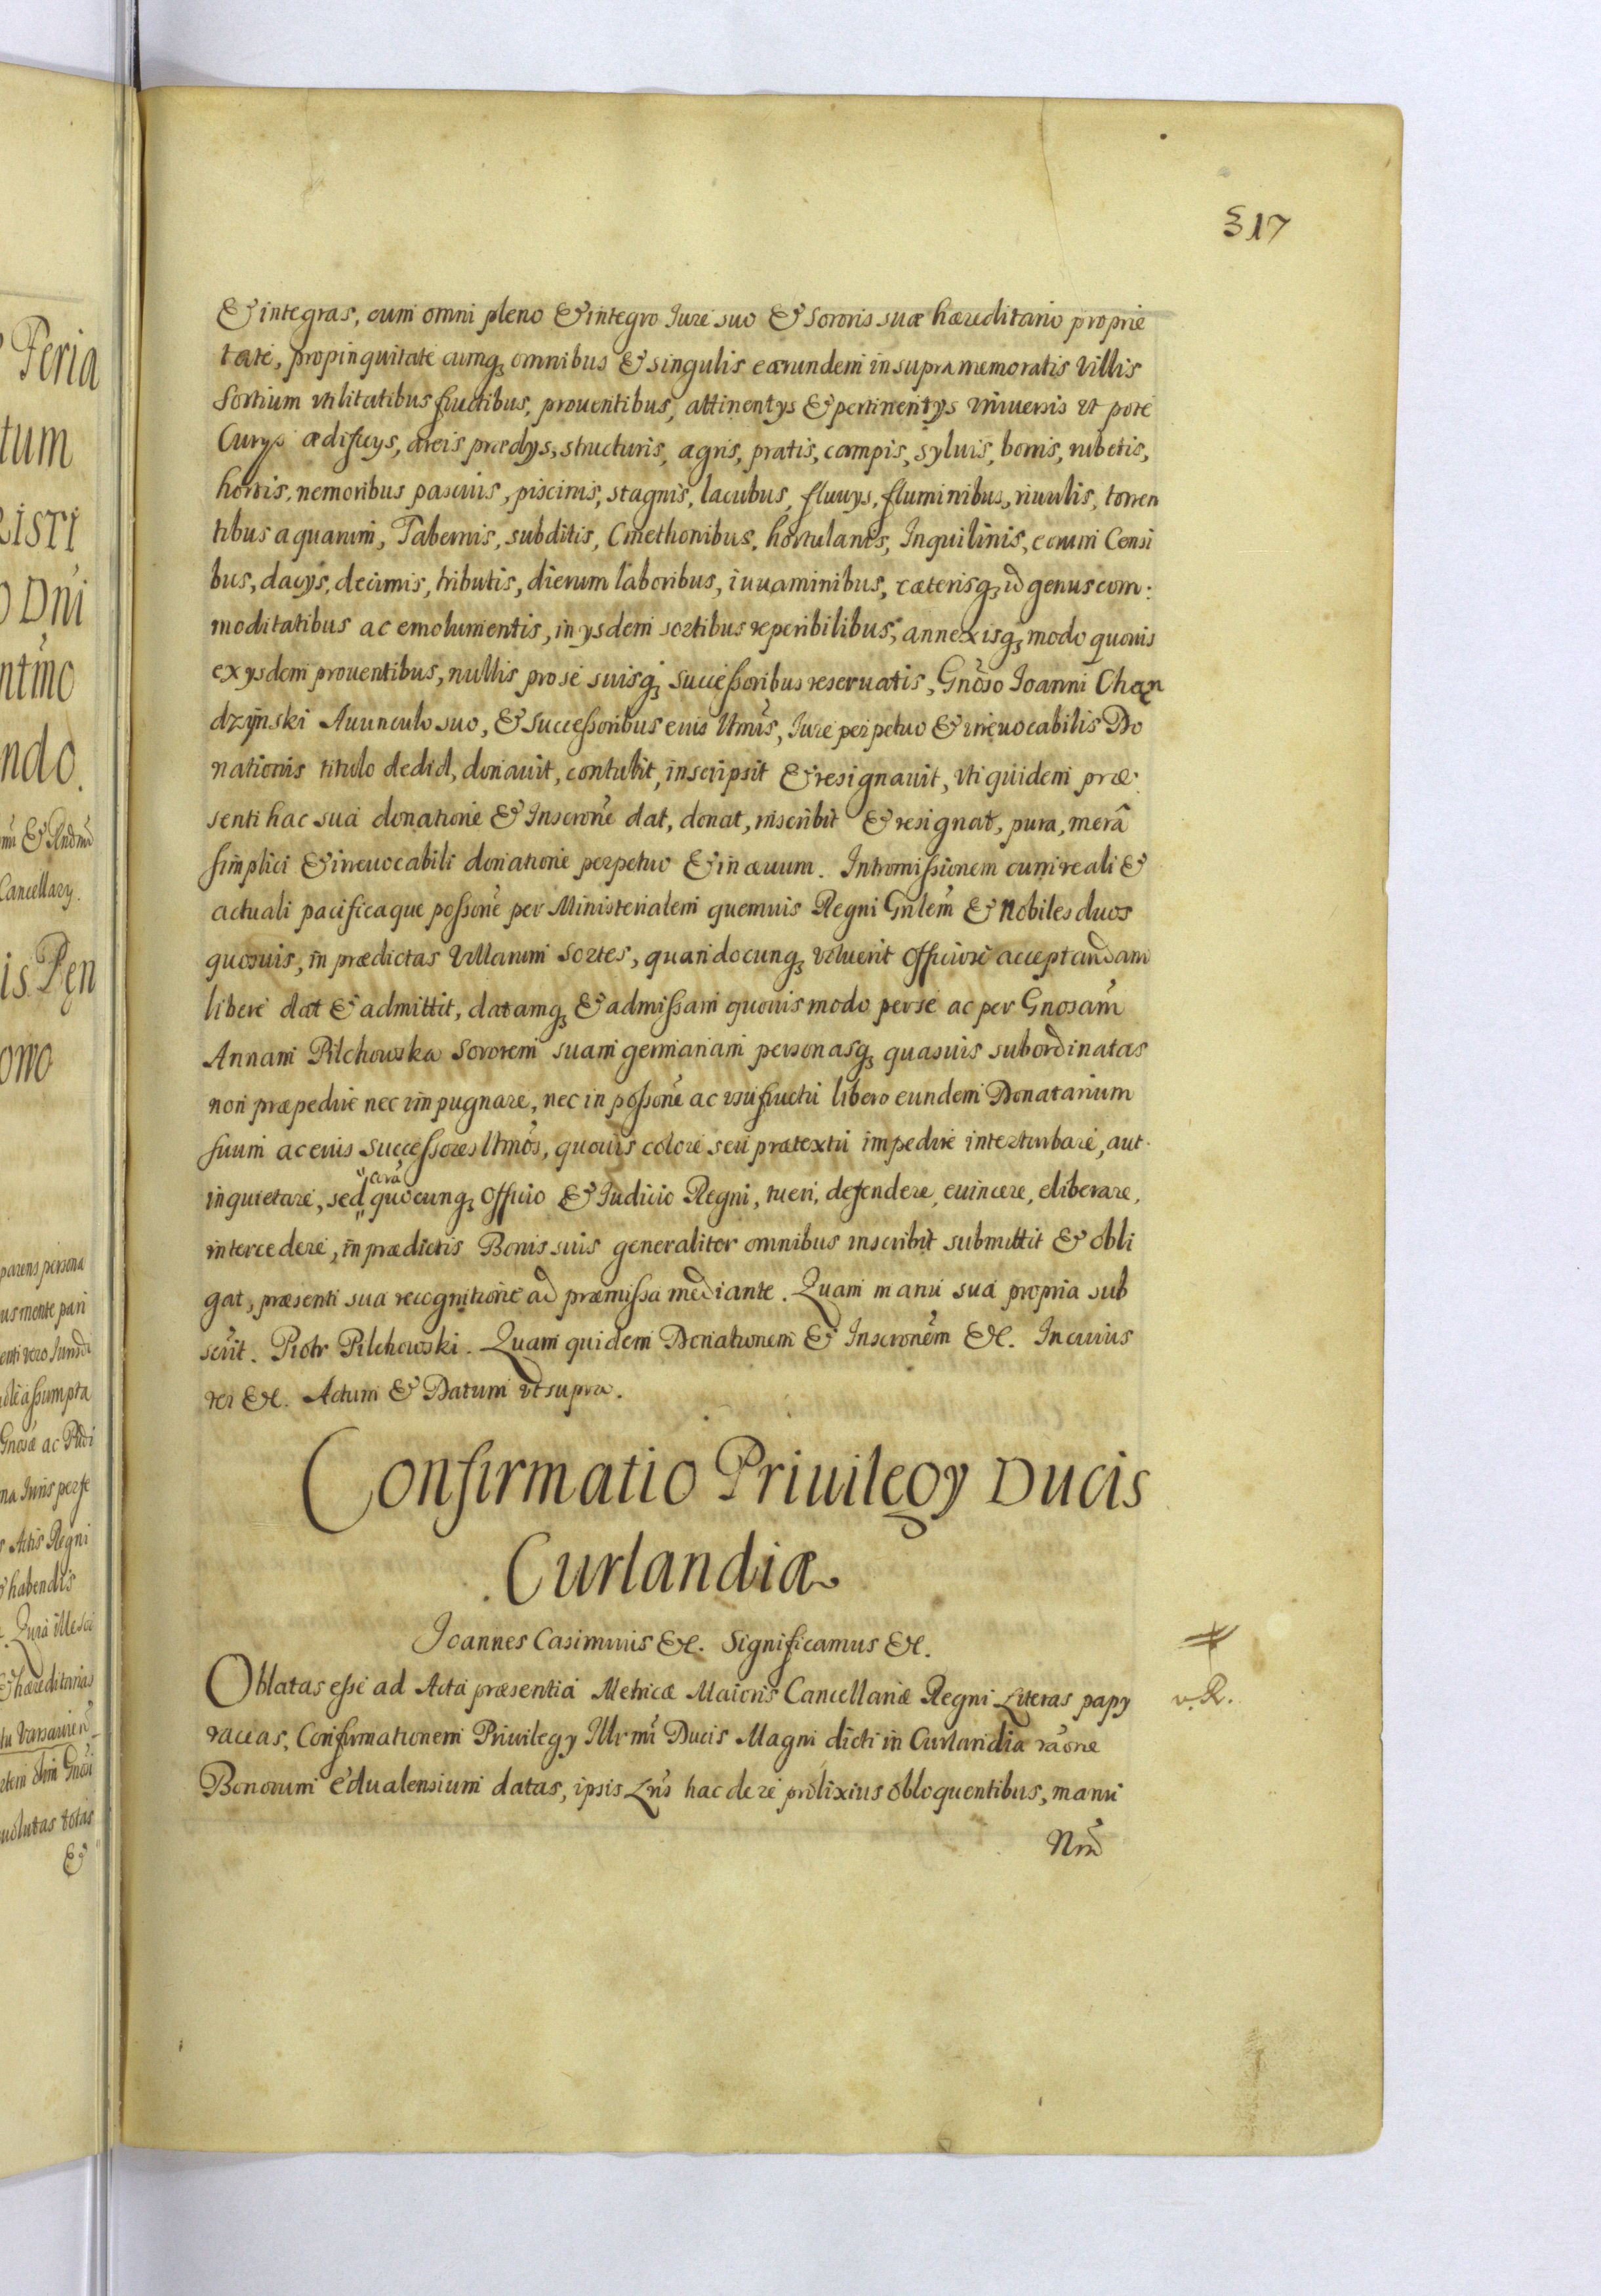 317
& integras, cum omni pleno & integro Iure suo & Sororis suæ hæreditario proprie
tate, propinquitate cumq, omnibus & singulis earundem in supramemoratis Villis
Sortium vtilitatibus fructibus, prouentibus, attinentys & pertinentys vniuersis vt pote
Curys ædificys, areis prædys, structuris, agris, pratis, campis, syluis, borris, rubetis,
hortis, nemoribus pascuis, piscinis, stagnis, lacubus, fluuys, fluminibus, riuulis, torren
tibus aquarum, Tabernis, subditis, Cmethonibus, hortulanis, Inquilinis, eorum Censi
bus, dacys, decimis, tributis, dierum laboribus, iuuaminibus, cæterisq, id genus com:
moditatibus ac emolumentis, in ysdem sortibus reperibilibus, annexisq, modo quouis
ex ysdem prouentibus, nullis pro se suisq, Successoribus reseruatis, Gnõso Ioanni Chąn
dzynski Auunculo suo, & Successoribus eius ltmis, Iure perpetuo & irreuocabilis Do
nationis titulo dedid, donauit, contulit, inscripsit & resignauit, vti quidem præ:
senti hac sua donatione & Inscrone dat, donat, inscribit & resignat, pura, merâ
simplici & irreuocabili donatione perpetuo & in æuum. Intromissionem cum reali &
actuali pacificaque possone per Ministerialem quemuis Regni Gnlem & Nobiles duos
quosuis, in prædictas Villarum Sortes, quandocunq, voluerit Officiose acceptandam
libere dat & admittit, datamq, & admissam quouis modo per se ac per Gnosam
Annam Pilchowska Sororem suam germanam personasq, quasuis subordinatas
non præpedire nec impugnare, nec in possone ac vsufructu libero eundem Donatarium
suum ac eius Successores ltmos, quouis colore seu prætextu impedire interturbare, aut
inquietare, sed cora quocunq, Officio & Iudicio Regni, tueri, defendere, euincere, eliberare,
intercedere, in prædictis Bonis suis generaliter omnibus inscribit submittit & obli
gat, præsenti sua recognitione ad præmissa mediante. Quam manu sua propria sub
scrit. Piotr Pilchowski. Quam quidem Donationem & Inscronem &c. In cuius
rei &c. Actum & Datum vt supra.
Confirmatio Priuilegy Ducis
Curlandiæ
Ioannes Casimirus &c. Significamus &c.
Oblatas esse ad Acta præsentia Metricæ Maioris Cancellariæ Regni Literas papy
v. R.
raceas, Confirmationem Priuilegy Illrmi Ducis Magni dicti in Curlandia raone
Bonorum Edualensium datas, ipsis Lris hac de re prolixius obloquentibus, manu
Nrã